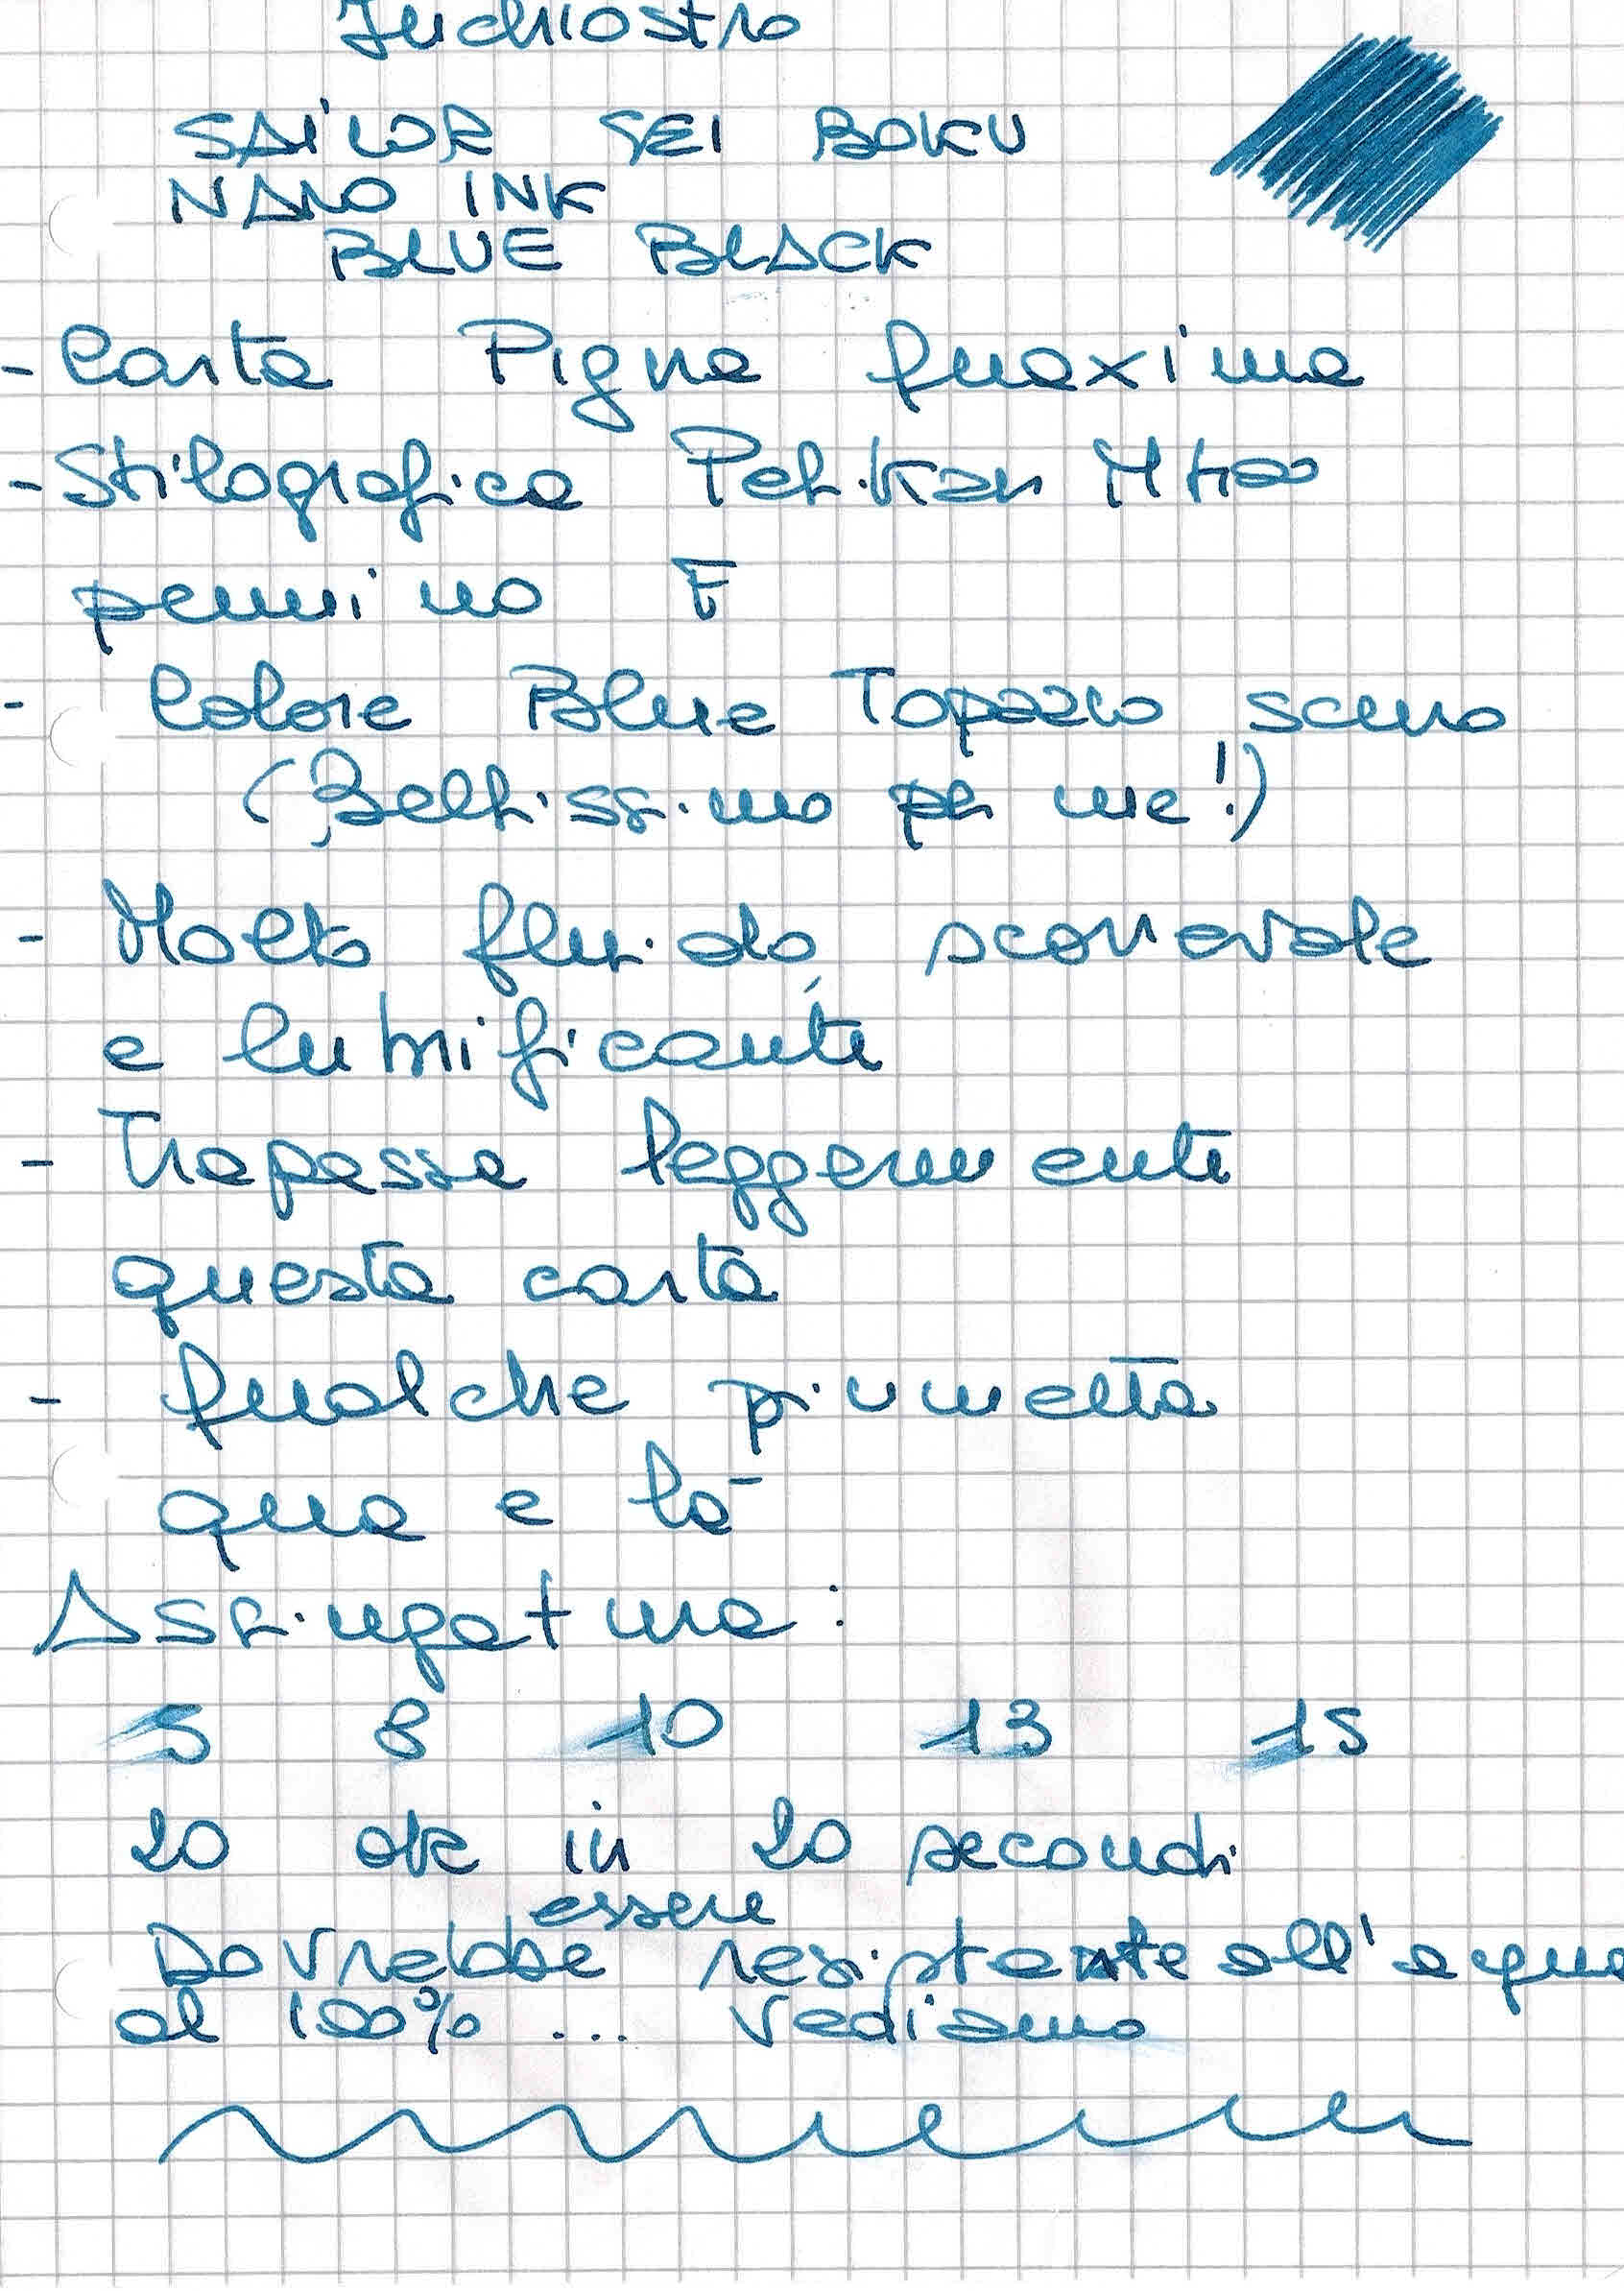 Inchiostro
SAILOR SEI BOKU
NANO INK
BLUE BLACK
- Carta Pigna Quaxima
- Stilografica Pelikan M400
pennino F
- Colore Blue Topazio scuro
(Bellissimo per me!)
- Molto fluido, scorrevole
e lubrificante
- Trapassa leggermente
questa carta
- Qualche piumetta
qua e là
Assiugatura:
5 8 10 13 15
20 ok in 20 secondi
essere
Dovrebbe resistente all'acqua
al 100% ... vediamo